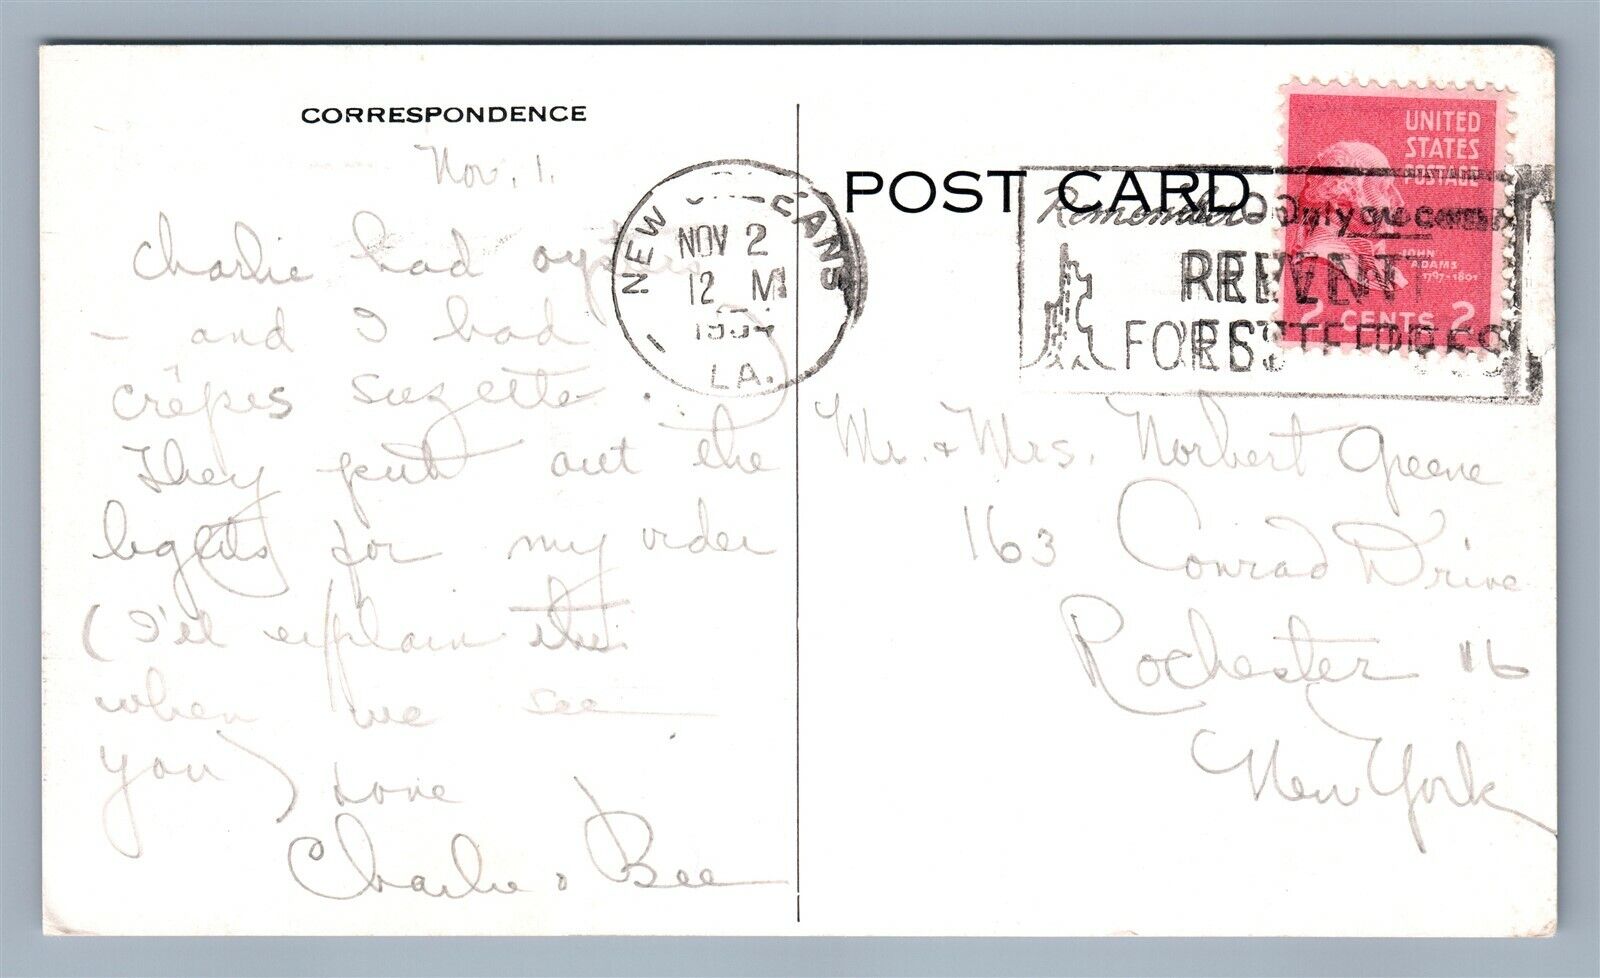 CORRESPONDENCE
Nov. 1.
Charlie had oysters
- and I had
crêpes suzette.
They put out the
lights for my order
(I'll explain this
when we see
you) Love
Charlie & Bee
NEW ORLEANS
NOV 2
12 M
1954
LA.
POST CARD
Remember Only you can
PREVENT
FOREST FIRES
UNITED
STATES
POSTAGE
JOHN
ADAMS
1797-1801
2 CENTS 2
Mr. & Mrs. Norbert Greene
163 Conrad Drive
Rochester 16
New York